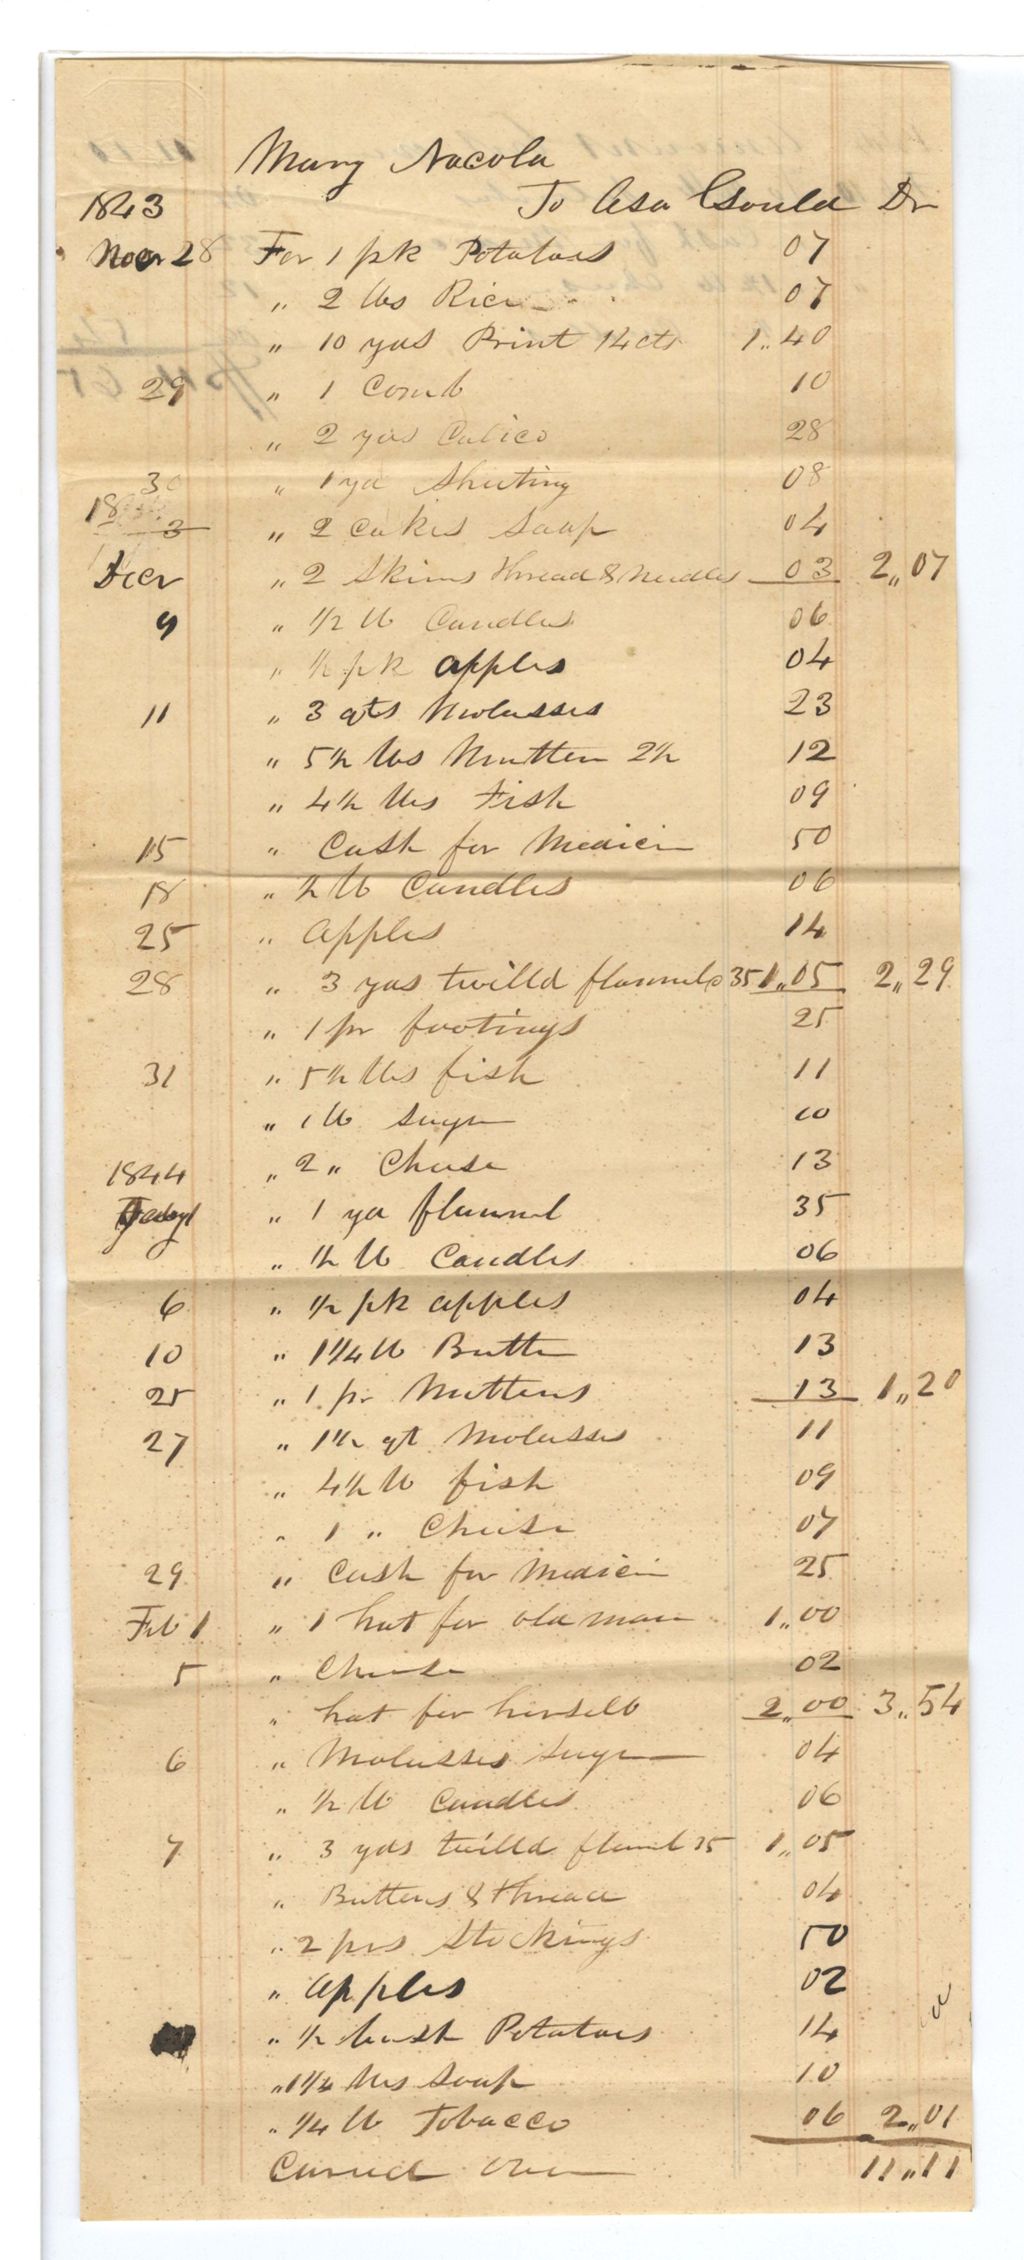 Mary Nacola
1843 To Asa Gould Dr
Novr 28 For 1 pk Potatoes 07
" 2 lbs Rice 07
" 10 yds Print 14cts 1.40
29 " 1 Comb 10
" 2 yds Calico 28
30 " 1 yd Sheeting 08
" 2 Cakes Soap 04
Decr " 2 Skins thread & Needles 03 2,,07
9 " 1/2 lb Candles 06
" 1/2 pk apples 04
11 " 3 qts Molasses 23
" 5 1/2 lbs Mutten 2 1/2 12
" 4 1/2 lbs Fish 09
15 " Cash for Medicin 50
18 " 1/2 lb Candles 06
25 " Apples 14
28 " 3 yds twilld flannel 35 1,,05 2,,29
" 1 pr footings 25
31 " 5 1/2 lbs fish 11
" 1 lb Sugar 10
" 2 " Cheese 13
1844 " 1 yd flannel 35
" 1/2 lb Candles 06
6 " 1/2 pk apples 04
10 " 1 1/4 lb Butter 13
25 " 1 pr Mittens 13 1,,20
27 " 1 1/2 qt Molasses 11
" 4 1/2 lb fish 09
" 1 " Cheese 07
29 " Cash for Medicin 25
Feb 1 " 1 hat for old man 1,,00
5 " Cheese 02
" hat for herself 2,,00 3,,54
6 " Molasses Sugar 04
" 1/2 lb Candles 06
7 " 3 yds twilld flannel 35 1,,05
" Buttons & thread 04
" 2 prs Stockings 50
" Apples 02
" 1/2 bush Potatoes 14
" 1 1/4 lbs Soap 10
" 1/4 lb Tobacco 06 2,,01
Carried Over 11,,11